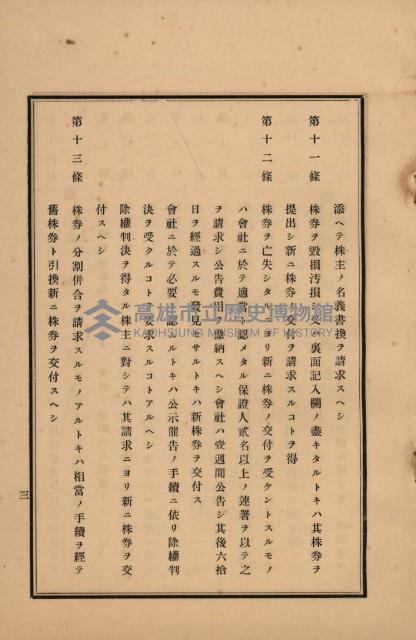 添ヘテ株主ノ名義書換ヲ請求スヘシ
第十一條 株券ヲ毀損汚損シ又ハ裏面記入欄ノ盡キタルトキハ其株券ヲ
提出シ新ニ株券ノ交付ヲ請求スルコトヲ得
第十二條 株券ヲ亡失シタルニヨリ新ニ株券ノ交付ヲ受ケントスルモノ
ハ會社ニ於テ適當ト認メタル保證人貳名以上ノ連署ヲ以テ之
ヲ請求シ公告費用ヲ豫納スヘシ會社ハ壹週間公告シ其後六拾
日ヲ經過スルモ發見セサルトキハ新株券ヲ交付ス
會社ニ於テ必要ト認ムルトキハ公示催告ノ手續ニ依リ除權判
決ヲ受クルコトヲ要求スルコトアルヘシ
除權判決ヲ得タル株主ニ對シテハ其請求ニヨリ新ニ株券ヲ交
付スヘシ
第十三條 株券ノ分割併合ヲ請求スルモノアルトキハ相當ノ手續ヲ經テ
舊株券ト引換新ニ株券ヲ交付スヘシ
三
高雄市立歷史博物館
KAOHSIUNG MUSEUM OF HISTORY